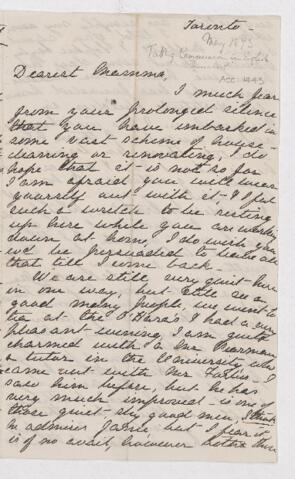 Toronto
May 1893
ACC 1443
Dearest Mamma,
I much fear
from your prolonged silence
that you have embarked in
some vast scheme of house-
cleaning or renovating, I do
hope that it is not so for
I am afraid you will wear
yourself out with it, I feel
such a wretch to be resting
up here while you are working
down at home, I do wish you
wd be persuaded to leave all
that till I come back -
We are still very quiet here
in one way, but still see a
good many people, we went to
tea at the O'Hara's I had a very
pleasant evening, I am quite
charmed with a Mr
a tutor in the University who
came out with Mr
saw him before, but he has
very much improved - is one of
those quiet - sly good men, I think
he admires Jamie but I fear it
is of no avail, however